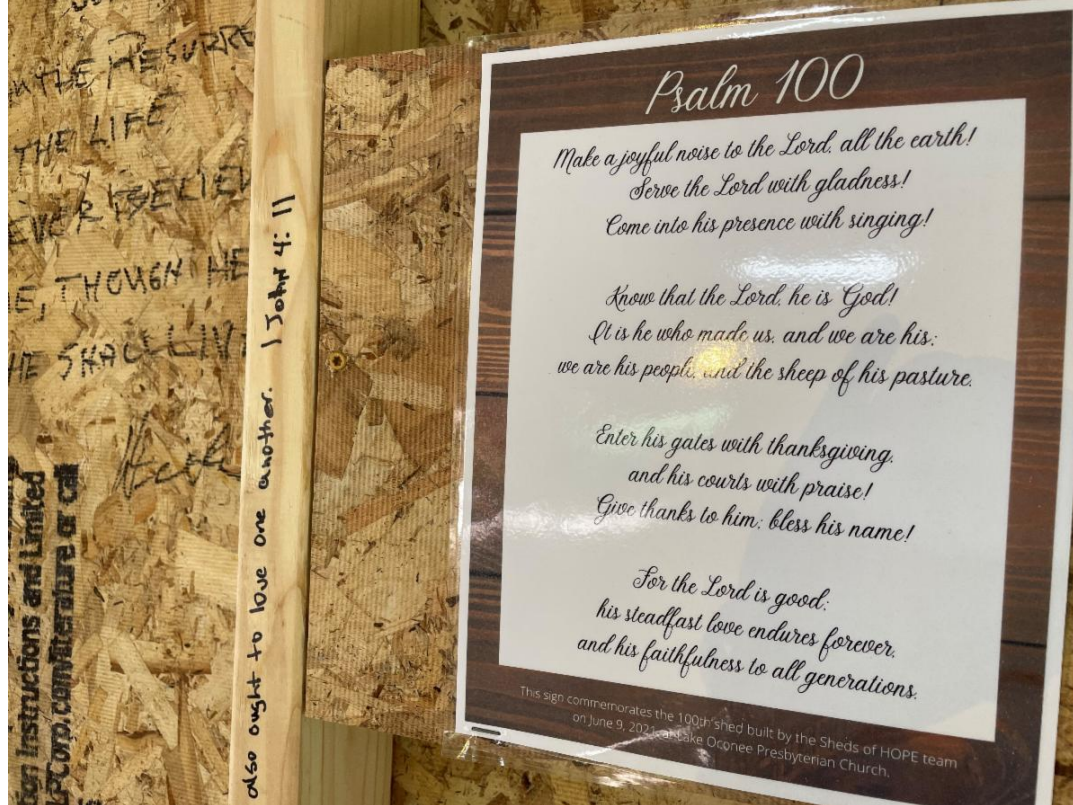 THE RESURRE
THE LIFE
EVER BELIEV
THOUGH HE
HE SHALL LIV
tion Instructions and Limited
LPCorp.com/literature or call
also ought to love one another. 1 John 4:11
Psalm 100
Make a joyful noise to the Lord, all the earth!
Serve the Lord with gladness!
Come into his presence with singing!
Know that the Lord, he is God!
It is he who made us, and we are his;
we are his people, and the sheep of his pasture.
Enter his gates with thanksgiving,
and his courts with praise!
Give thanks to him; bless his name!
For the Lord is good;
his steadfast love endures forever,
and his faithfulness to all generations.
This sign commemorates the 100th shed built by the Sheds of HOPE team
on June 9, 2021 at Lake Oconee Presbyterian Church.